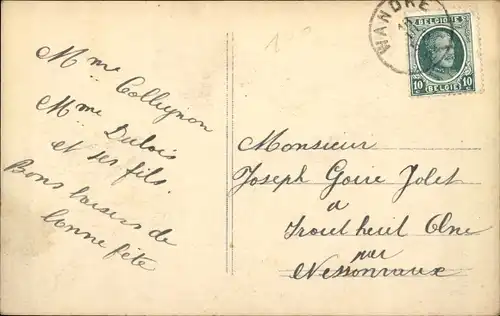 Mme Collignon
Mme Dubois
et ses fils.
Bons baisers de
bonne fête
MANDRE
BELGIQUE
10 10
BELGIË
Monsieur
Joseph Goire Jolet
a
Olne
par
Nessonvaux